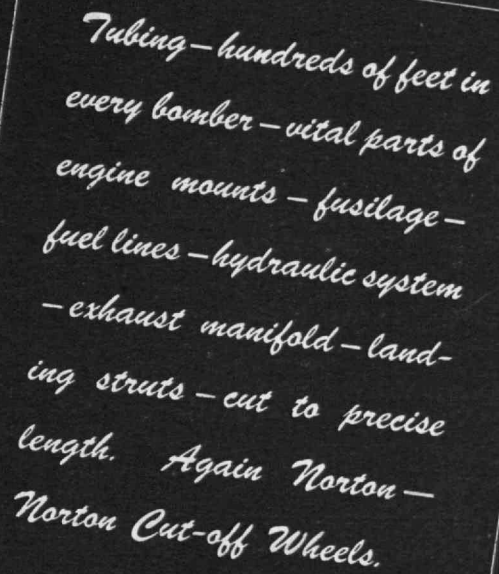 Tubing—hundreds of feet in
every bomber—vital parts of
engine mounts — fusilage—
fuel lines—hydraulic system
—exhaust manifold—land-
ing struts—cut to precise
length. Again Norton—
Norton Cut-off Wheels.